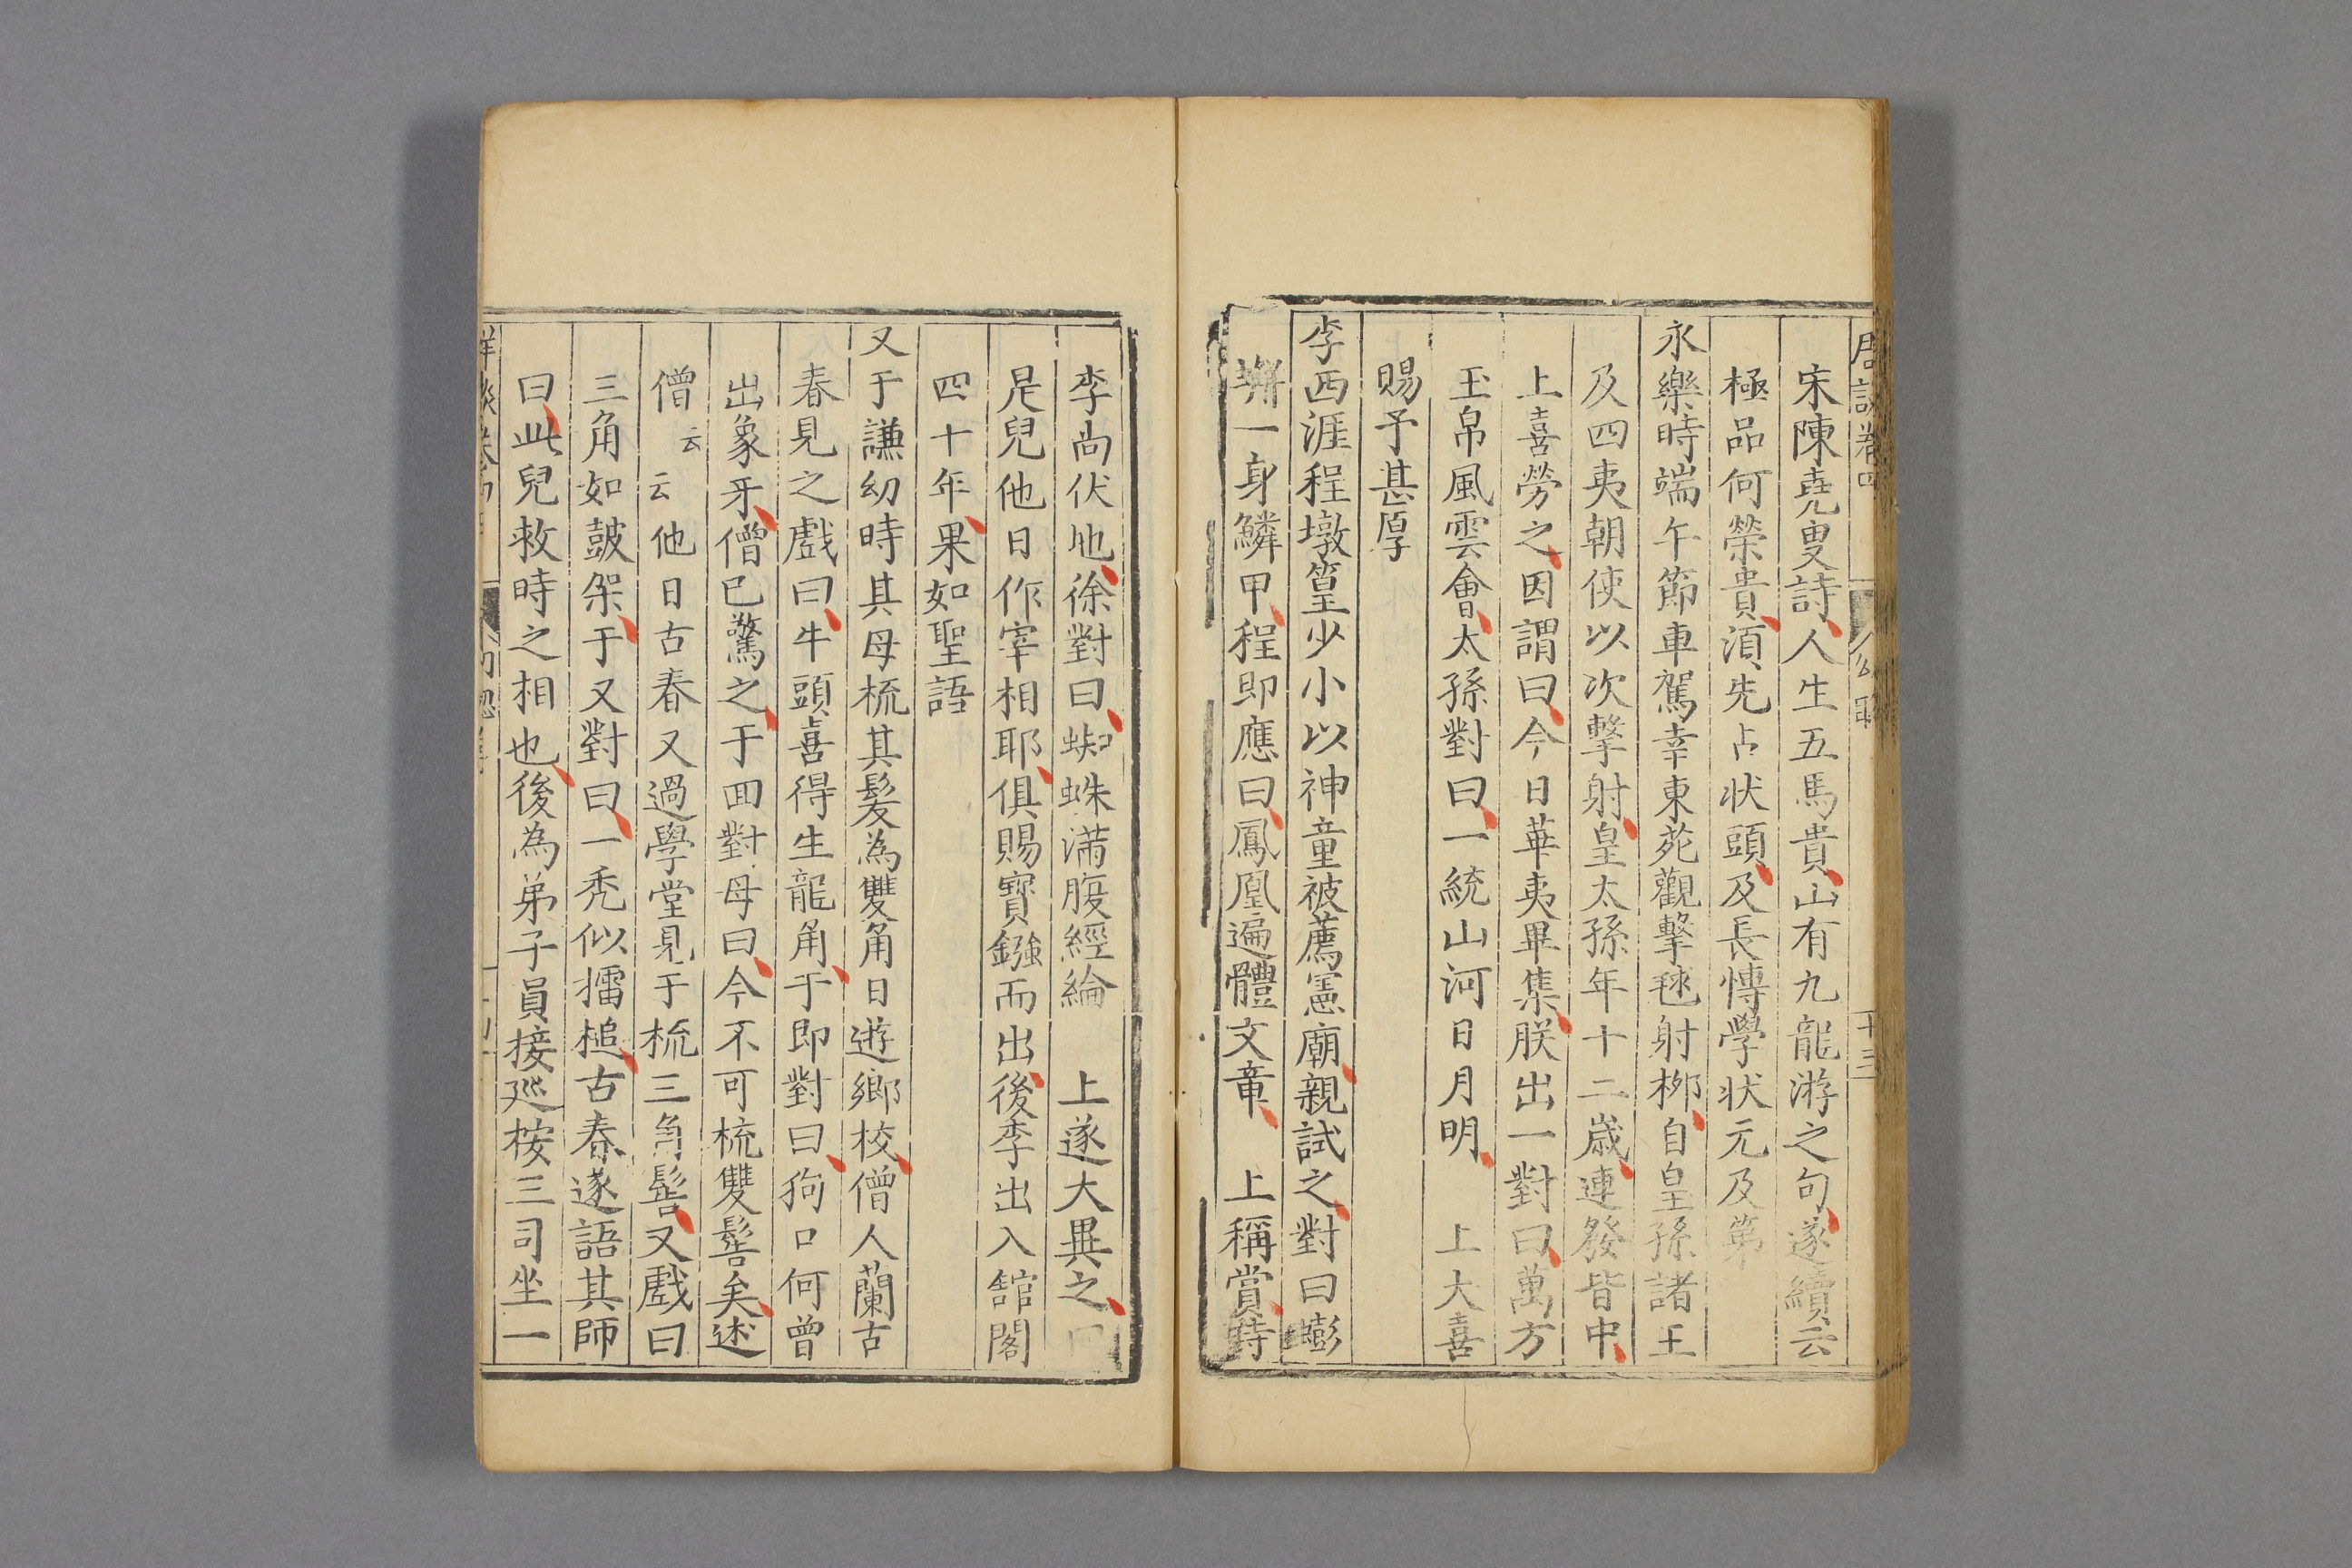 宋陳堯叟詩人生五馬貴山有九龍游之句遂續云
極品何榮貴湏先占状頭及長慱學状元及第
永樂時端午節車駕幸東苑觀擊毬射栁自皇孫諸王
及四夷朝使以次擊射皇太孫年十二歳連發皆中
上喜勞之因謂曰今日華夷畢集朕出一對曰萬方
玉帛風雲會太孫對曰一統山河日月明 上大喜
賜予甚厚
李西涯程墩篁少小以神童被薦憲廟親試之對曰螃
一身鱗甲程即應曰鳳凰遍體文章 上稱賞時
李尚伏地徐對曰蜘蛛滿腹經綸 上遂大異之曰
是兒他日作宰相耶俱賜寳鏹而出後李出入舘閣
四十年果如聖語
又于謙幼時其母梳其髮為雙角日遊鄉校僧人蘭古
春見之戲曰牛頭喜得生龍角于即對曰狗口何曾
出象牙僧已驚之于回對母曰今不可梳雙髻矣述
僧云云他日古春又過學堂見于梳三角髻又戲曰
三角如皷架于又對曰一秃似擂槌古春遂語其師
曰此兒救時之相也後為弟子員接廵按三司坐一